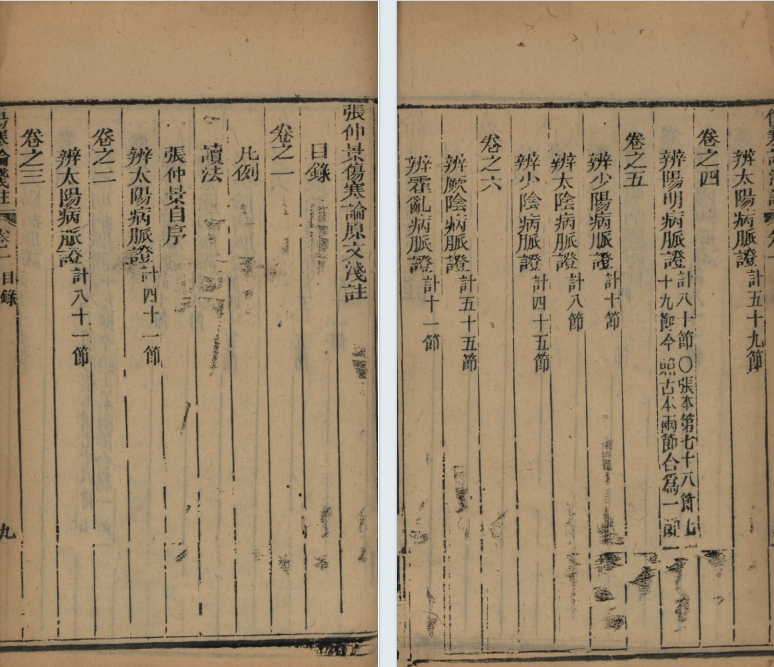 張仲景傷寒論原文淺註
目錄
卷之一
凡例
讀法
張仲景自序
辨太陽病脈證計四十一節
卷之二
辨太陽病脈證計八十一節
卷之三
傷寒論淺註 卷一 目錄 九
辨太陽病脈證計五十九節
卷之四
辨陽明病脈證計八十節〇張本第七十八節七
十九節今照古本兩節合爲一節
卷之五
辨少陽病脈證計十節
辨太陰病脈證計八節
辨少陰病脈證計四十五節
卷之六
辨厥陰病脈證計五十五節
辨霍亂病脈證計十一節